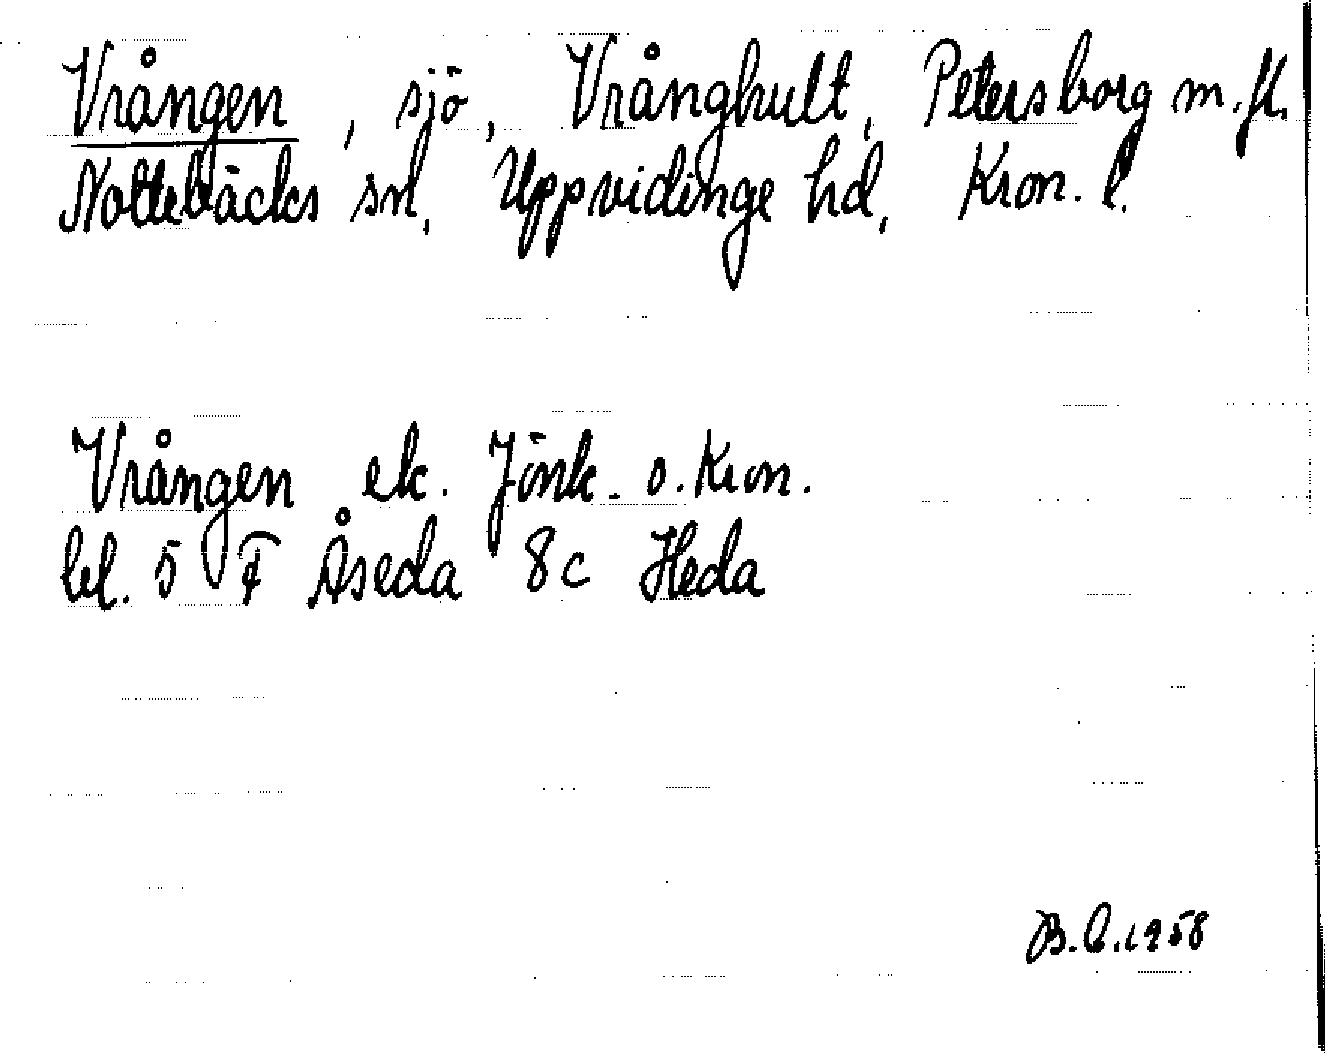 Vrången, sjö, Vrånghult, Petersborg m.fl.
Nottebäcks sn, Uppvidinge hd, Kron. l.
Vrången ek. Jönk. o. Kron.
bl. 5 F Åseda 8c Heda
B. C. 1958